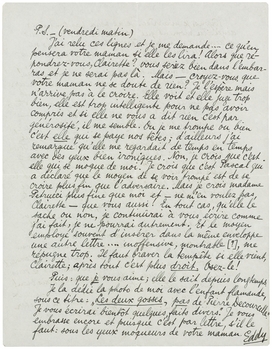 P.S. _ (vendredi matin)
J'ai relu ces lignes et je me demande... ce qu'en
pensera votre maman si elle les lira! Alors que ré-
pondrez-vous, Clairette? vous serez bien dans l'embar-
ras et je ne serai pas là. Mais — croyez-vous que
votre maman ne se doute de rien? Je l'espère mais
n'arrive pas à le croire. Elle voit et elle juge trop
bien, elle est trop intelligente pour ne pas avoir
compris et si elle ne vous a dit rien c'est par
générosité, il me semble. On je me trompe ou bien
c'est elle qui se paye nos têtes; d'ailleurs j'ai
remarqué qu'elle me regardait de temps en temps
avec des yeux bien ironiques. Non, je crois que c'est
elle qui se moque de moi. Je crois que c'est Pascal qui
a déclaré que le moyen de se voir trompé est de se
croire plus fin que l'adversaire. Mais je crois madame
Petrucci plus fine que moi et — ne m'en voulez pas,
Clairette — que vous aussi! En tout cas, qu'elle le
sache ou non, je continuerai à vous écrire comme
j'ai fait; je ne pourrai autrement. Et le moyen
employé souvent d'insérer dans la même enveloppe
une autre lettre... inoffensive, montrable [?], me
répugne trop. Il faut braver la tempête si elle vient,
Clairette; après tout c'est plus droit. Osez-le!
Puis que je vous aime; elle le sait depuis longtemps
Je la défie photo de moi avec l'enfant flamande,
sous ce titre: Les deux gosses, pas de Pierre Decourcelle
Je vous écrirai bientôt quelques faits divers. Je vous
embrasse encore et puisque c'est par lettre, s'il le
faut: sous les yeux moqueurs de votre maman. Eddy